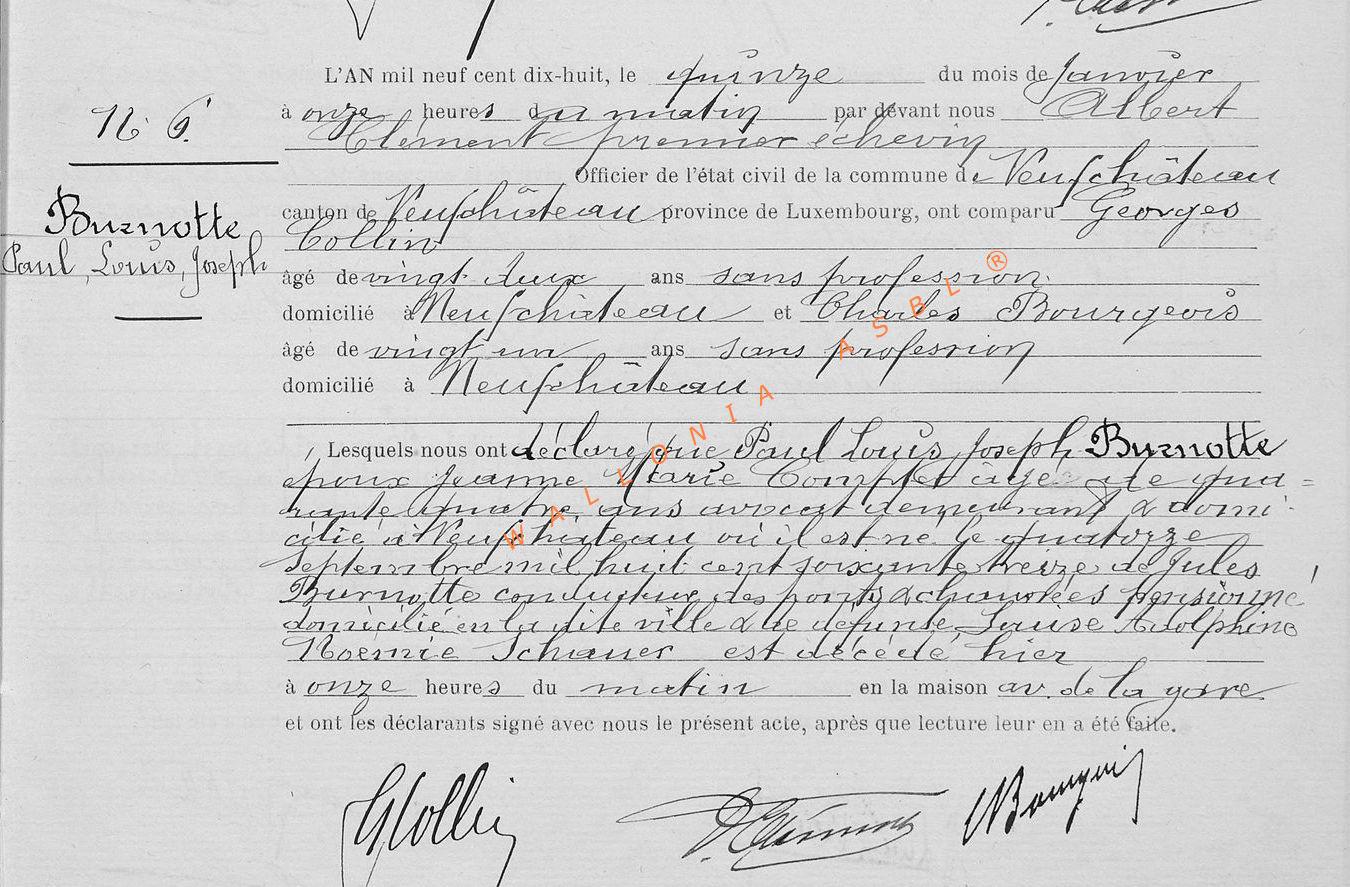 L'AN mil neuf cent dix-huit, le quinze du mois de Janvier
N° 6.
à onze heures du matin par devant nous Albert
Clément premier échevin
Officier de l'état civil de la commune de Neufchâteau
Burnotte
canton de Neufchâteau province de Luxembourg, ont comparu Georges
Collin
Paul, Louis, Joseph
âgé de vingt deux ans sans profession.
domicilié à Neufchâteau et Charles Bourgeois
âgé de vingt un ans sans profession
domicilié à Neufchâteau
Lesquels nous ont déclaré que Paul Louis Joseph Burnotte
époux Jeanne Marie âgé de qua=
rante quatre ans avocat demeurant & domi-
cilié à Neufchâteau où il est né le quatorze
septembre mil huit cent soixante treize de Jules
Burnotte conducteur des ponts & chaussées pensionné
domicilié en la dite ville & de défunte Louise Adolphine
Noëmie Schauer est décédé hier
à onze heures du matin en la maison av. de la gare
et ont les déclarants signé avec nous le présent acte, après que lecture leur en a été faite.
GCollin
WALLONIA ASBL ®